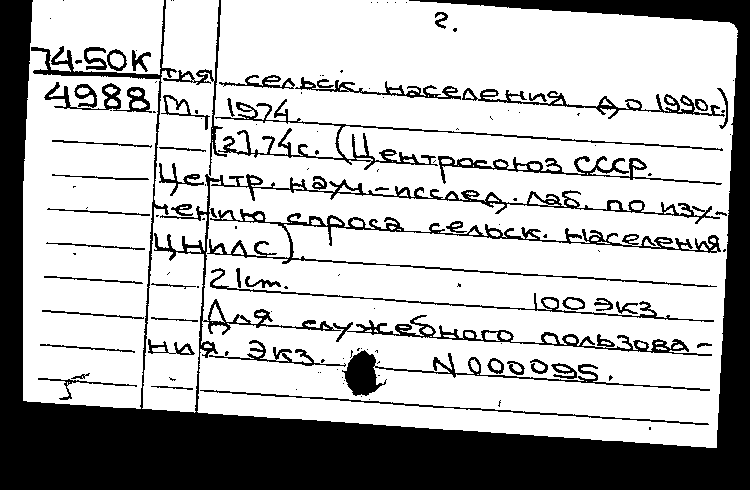 2.
74-50К
4988
тия сельск. населения до 1990г.)
М., 1974.
[2], 74с. (Центросоюз СССР.
Центр. науч.-исслед. лаб. по изу-
чению спроса сельск. населения.
ЦНИЛС).
21см.
100 экз.
Для служебного пользова-
ния. Экз. N 000095.